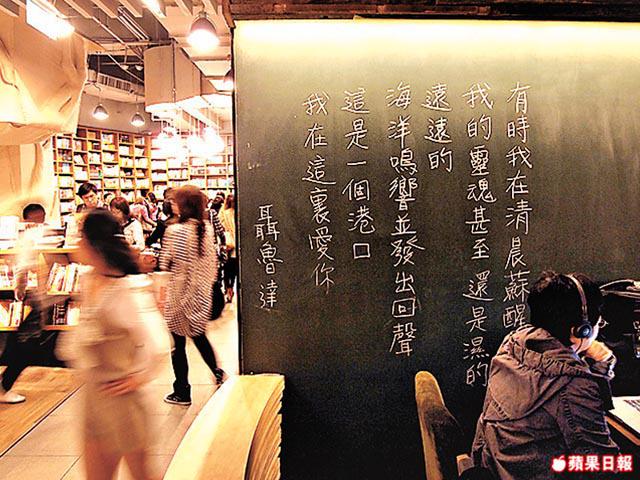 有時我在清晨蘇醒
我的靈魂甚至 還是濕的
遠遠的
海洋鳴響並發出回聲
這是一個港口
我在這裏愛你
聶魯達
蘋果日報